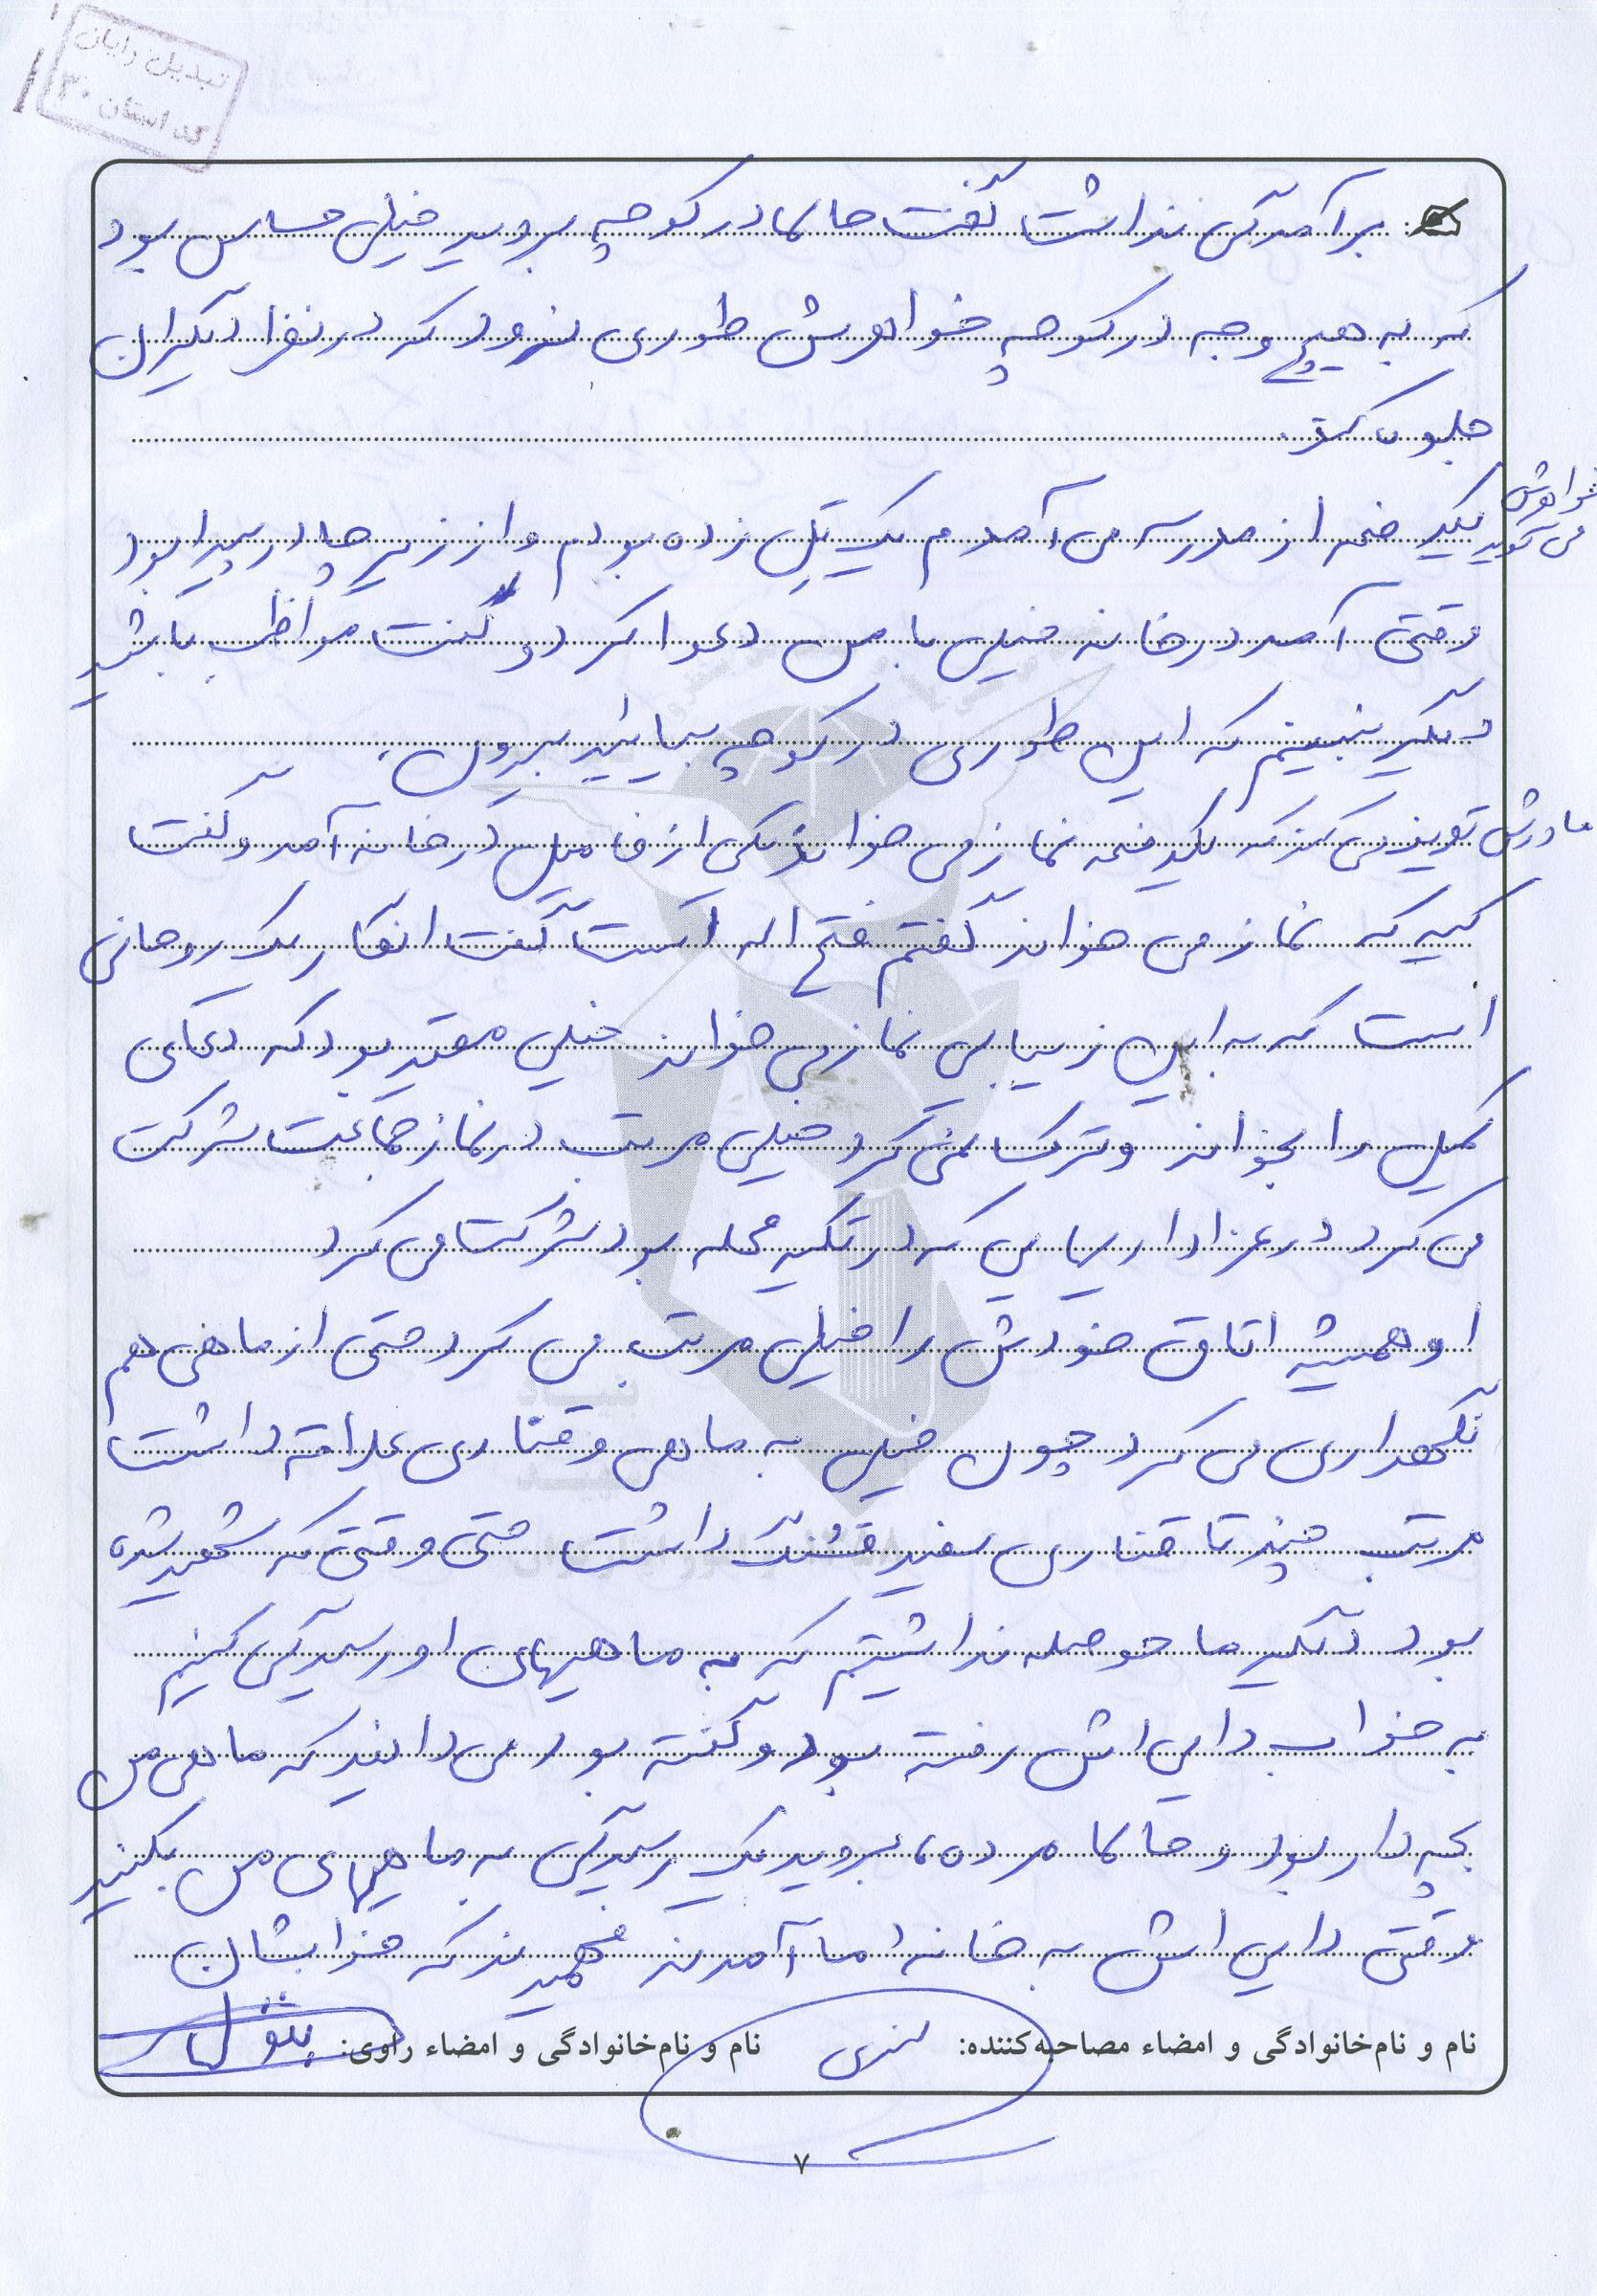 تبدیل رایان
کد استان ۳۰
برآمدگی نداشت گفت حالا در کوچه بروید خیلی حساس بود
که به هیچ وجه در کوچه خواهرش طوری نرود که در نظر دیگران
جلوه کند.
خواهرش می گوید یکدفعه از مدرسه می آمدم یک تِل زده بودم و از زیر چادر پیدا بود
وقتی آمد در خانه خیلی با من دعوا کرد و گفت مواظب باشید
دیگر نبینم که این طوری در کوچه بیایید بیرون.
مادرش تعریف می کند که یکدفعه نماز می خواند یکی از فامیل در خانه آمد و گفت
کیه که نماز می خواند گفتم فتح اله است گفت انگار یک روحانی
است که به این زیبایی نماز می خواند خیلی مقید بود که دعای
کمیل را بخواند و ترک نمی کرد خیلی مرتب در نماز جماعت شرکت
می کرد در عزاداریهایی که در تکیه محله بود شرکت می کرد
او همیشه اتاق خودش را خیلی مرتب می کرد حتی از ماهی هم
نگهداری می کرد چون خیلی به ماهی و قناری علاقه داشت
مرتب چند تا قناری سفید قشنگ داشت حتی وقتی که شهید شده
بود دیگر ما حوصله نداشتیم که به ماهیهای او رسیدگی کنیم
به خواب دایی اش رفته بود و گفته بود می دانید که ماهی من
بچه دار بود و حالا مرده، بروید یک رسیدگی به ماهیهای من بکنید
وقتی دایی اش به خانه ما آمدند فهمیدند که خوابشان
نام و نام‌خانوادگی و امضاء مصاحبه‌کننده: نام و نام‌خانوادگی و امضاء راوی:
۷